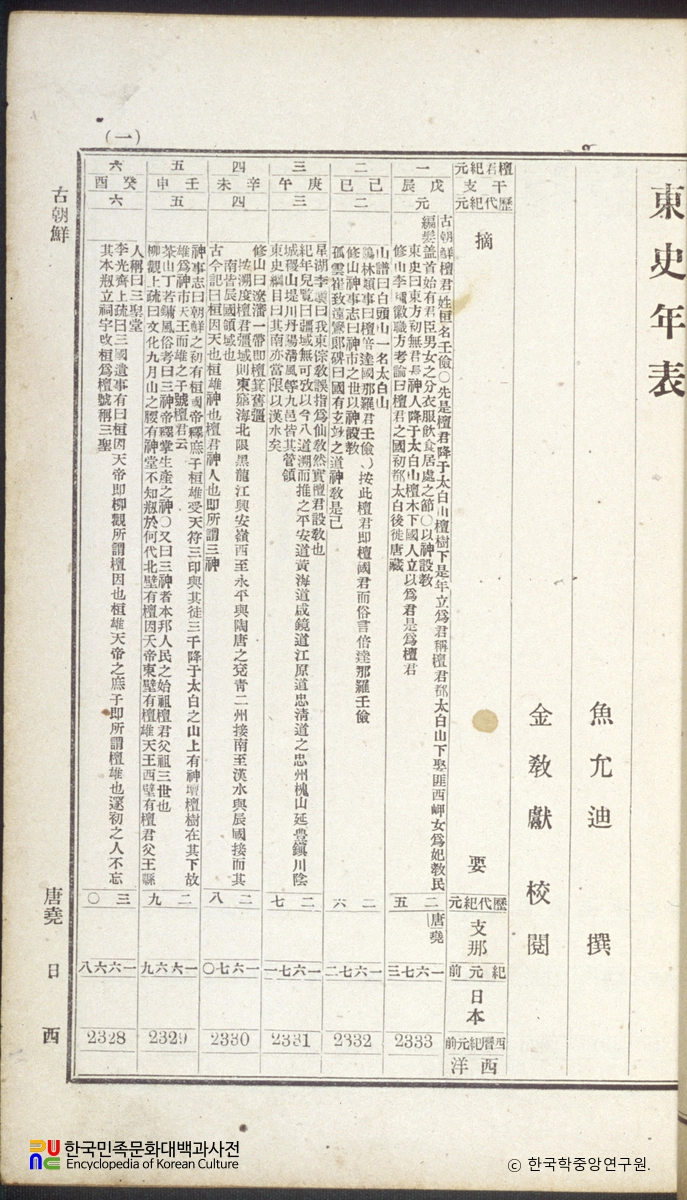 東史年表
魚允迪 撰
金敎獻 校閱
(一)
檀君紀元 一 二 三 四 五 六
干支 戊辰 己巳 庚午 辛未 壬申 癸酉
歷代紀元 元 二 三 四 五 六
摘要
古朝鮮檀君姓桓名王儉○先是檀君降于太白山檀樹下是年立爲君稱檀君都太白山下娶匪西岬女爲妃敎民
編髮盖首始有君臣男女之分衣服飮食居處之節○以神設敎
東史曰東方初無君長神人降于太白山檀木下國人立以爲君是爲檀君
修山李種徽職方考論曰檀君之國初都太白後徙唐藏
山譜曰白頭山一名太白山
鷄林類事曰檀倍達國那羅君壬儉)按此檀君即檀國君而俗言倍達那羅壬儉
修山神事志曰神市之世以神設敎
孤雲崔致遠鸞郞碑曰國有玄妙之道神敎是已
星湖李瀷曰我東宗敎誤指爲仙敎然實檀君設敎也
紀年兒覽曰疆域無可攷以今八道溯而推之平安道黃海道咸鏡道江原道忠淸道之忠州槐山延豊鎭川陰
城礎山堤川丹陽淸風等九邑皆其管領
東史綱目曰其南亦當限以漢水矣
修山曰遼瀋一帶即檀箕舊疆
按溯度檀君疆域則東窮海北限黑龍江興安嶺西至永平與陶唐之兗靑二州接南至漢水與辰國接而其
南皆辰國領域也
古今記曰桓因天也桓雄神也檀君神人也即所謂三神
神事志曰朝鮮之初有桓國帝釋庶子桓雄受天符三印與其徒三千降于太白之山上有神壇檀樹在其下故
雄爲神市天王而雄之子號檀君云
茶山丁若鏞風俗考曰三神帝釋掌生產之神○又曰三神者本邦人民之始祖檀君父祖三世也
柳觀上疏曰文化九月山之腰有神堂不知刱於何代北壁有檀因天帝東壁有檀雄天王西壁有檀君父王縣
人稱曰三聖堂
李光齊上疏曰三國遺事有曰桓因天帝即柳觀所謂檀因也桓雄天帝之庶子即所謂檀雄也邃初之人不忘
其本刱立祠宇改桓爲檀號稱三聖
歷代紀元 二五 二六 二七 二八 二九 三○
支那 唐堯
紀元前 一六七三 一六七二 一六七一 一六七○ 一六六九 一六六八
日本
西曆紀元前 2333 2332 2331 2330 2329 2328
西洋
古朝鮮
唐堯
日
西
한국민족문화대백과사전
Encyclopedia of Korean Culture
ⓒ 한국학중앙연구원.